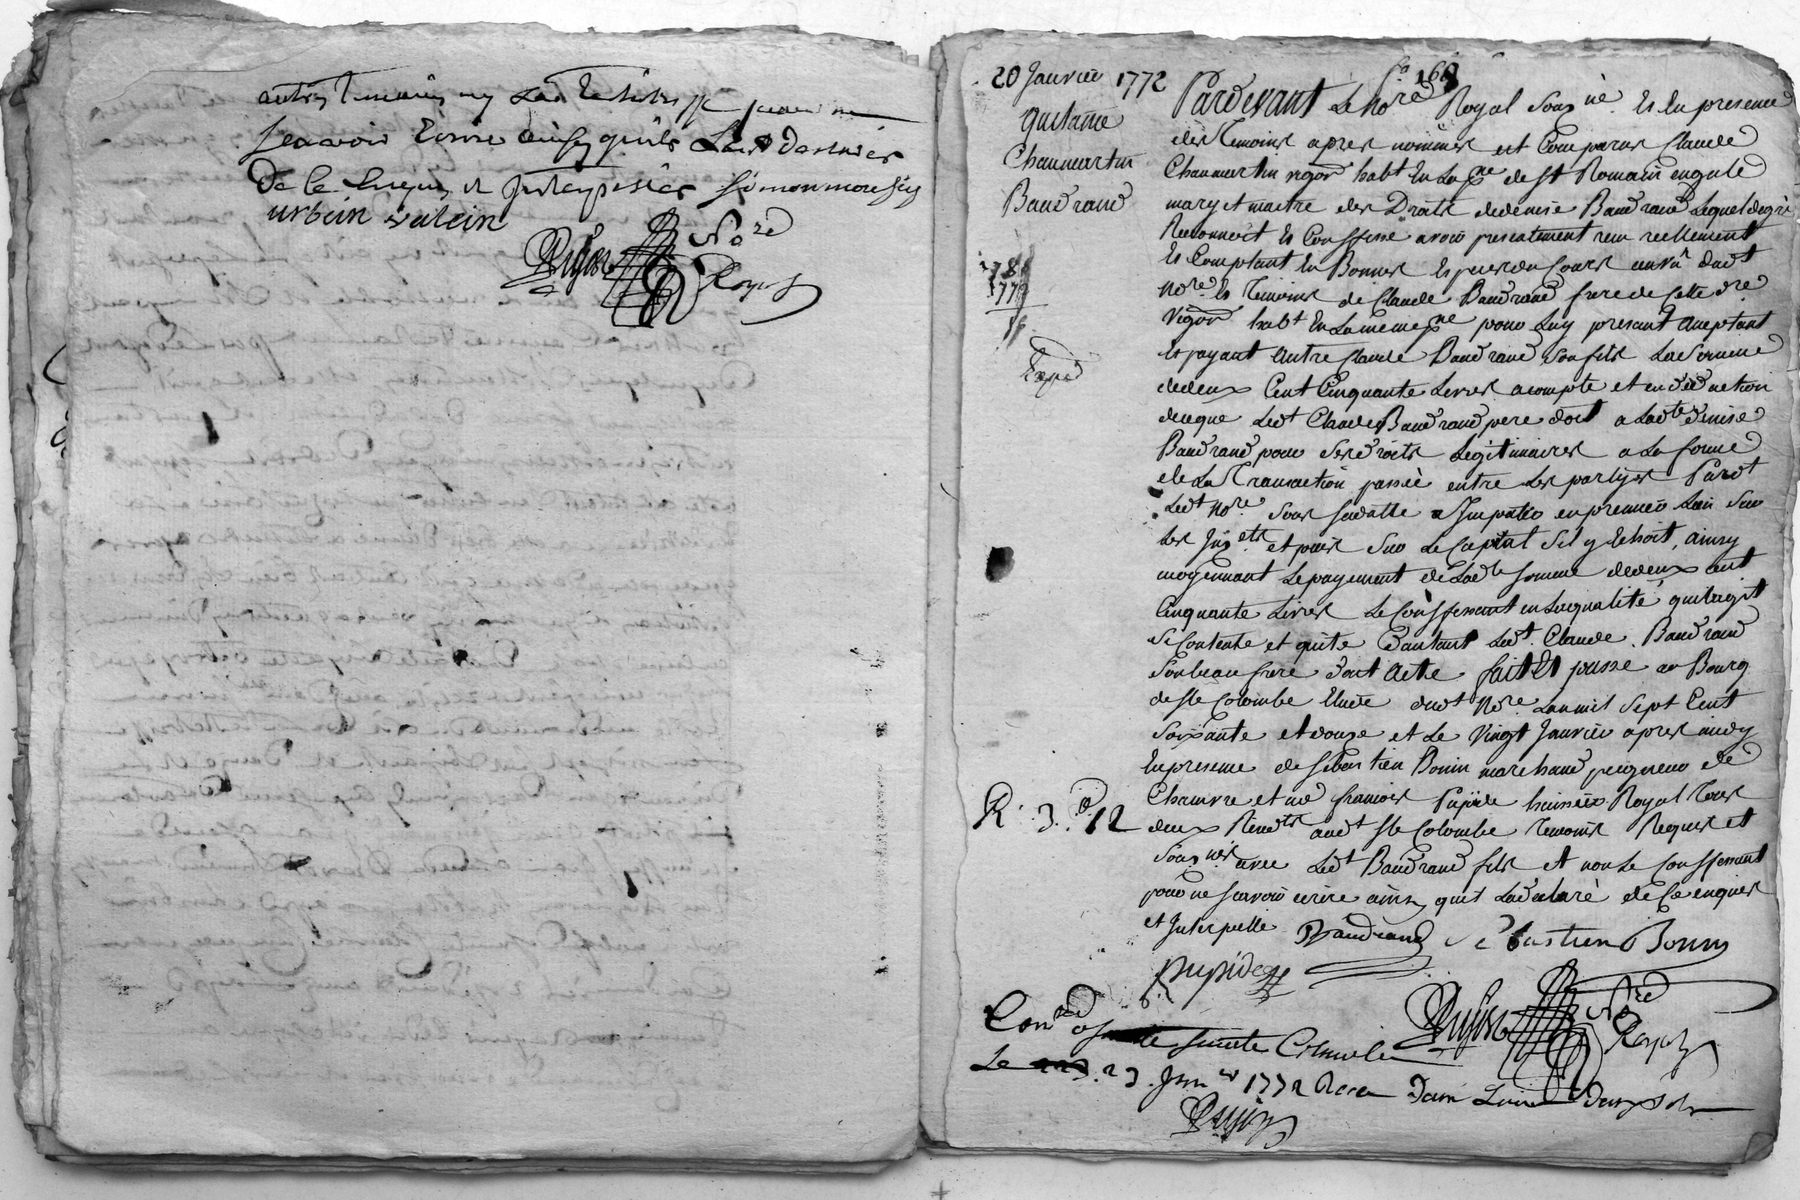 autres temoins ny
scavoir Ecrire ainsy quils
De le Enquis et Interpellés simon morel
urbain valein
Nore
Royal
fo 168
20 Janvier 1772
Quitance
Chaumartin
Baudrand
Expé
R. 3. 12
Pardevant Le Nore Royal Sousné Et En presence
des Temoins apres nommés est Comparus Claude
Chaumartin vigon habt En La pne de St Romain en gale
mary et maitre des Droits de denise Baudrand Lequel de gré
Reconnoit Et Confesse avoir presentement reçu reellement
Et Comptant En Bonnes Especes du Cours dudt
Nore Et Temoins de Claude Baudrand frere de Cette dre
Vigon habt En La meme pne pour Luy presant acceptant
Et payant autre Claude Baudrand Son fils La Somme
de deux Cent Cinquante Livres a compte et en deduction
de ce que Ledt Claude Baudrand pere doit a Ladte denise
Baudrand pour Ses droits Legitimaires a La forme
de La Transaction passée entre Les partyes Pardt
Ledt Nore Sous Sa datte a Imputer en premier Lieu Sur
Les Inets et puis Sur Le Capital S'il y Echoit, ainsy
moyennant Le payement de Ladte Somme de deux cent
Cinquante Livres Le Conffessant en Sa qualité quil agit
Se Contente et quite d'autant Ledt Claude Baudrand
Son beau frere dont Acte fait Et passé au Bourg
de Ste Colombe Etude dudt Nore L'an mil Sept Cent
Soixante et douze et Le Vingt Janvier apres midy
En presence de Sebastien Bonin marchand peigneur de
Chanvre et me francois Pupide huissier Royal Tous
deux Residts audt Ste Colombe Temoins Requis et
Sousnés avec Ledt Baudrand fils et non Le Conffessant
pour ne Scavoir ecrire ainsy quil La declaré de Ce enquis
et Interpellé Baudrand Sebastien Bonin
pupide
Nore
Royal
Conlé a Sainte Colombe
Le 23. Janer 1772 Reçu